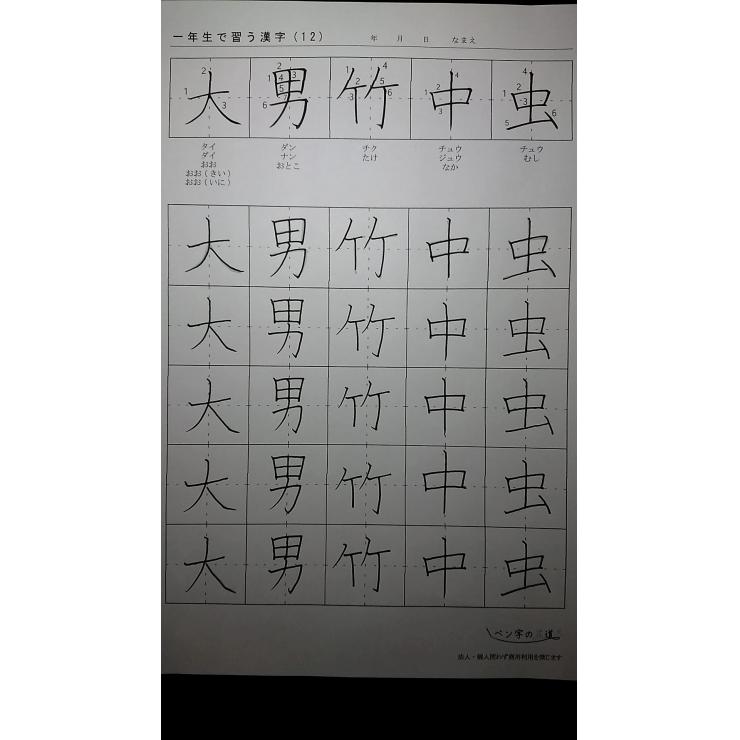 一年生で習う漢字(12) 年 月 日 なまえ
大 男 竹 中 虫
タイ ダン チク チュウ チュウ
ダイ ナン たけ ジュウ むし
おお おとこ なか
おお(きい)
おお(いに)
大 男 竹 中 虫
大 男 竹 中 虫
大 男 竹 中 虫
大 男 竹 中 虫
大 男 竹 中 虫
ペン字の 道
法人・個人問わず商用利用を禁じます